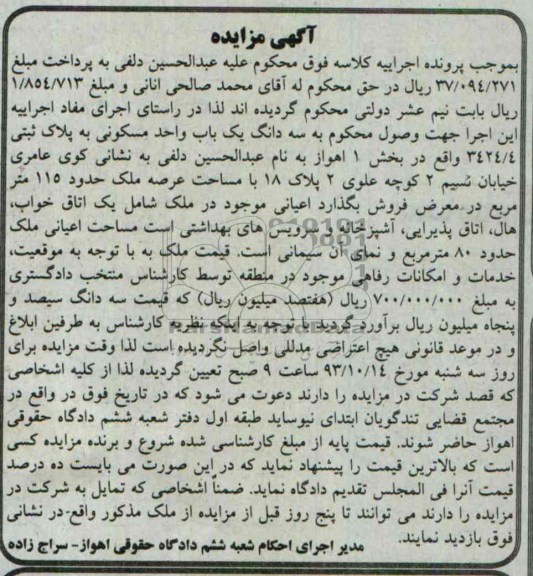 آگهی مزایده
بموجب پرونده اجراییه کلاسه فوق محکوم علیه عبدالحسین دلفی به پرداخت مبلغ
۳۷/۰۹٤/۲۷۱ ریال در حق محکوم له آقای محمد صالحی انانی و مبلغ ۱/۸٥٤/۷۱۳
ریال بابت نیم عشر دولتی محکوم گردیده اند لذا در راستای اجرای مفاد اجراییه
این اجرا جهت وصول محکوم به سه دانگ یک باب واحد مسکونی به پلاک ثبتی
۳٤۲٤/٤ واقع در بخش ۱ اهواز به نام عبدالحسین دلفی به نشانی کوی عامری
خیابان نسیم ۲ کوچه علوی ۲ پلاک ۱۸ با مساحت عرصه ملک حدود ۱۱۵ متر
مربع در معرض فروش بگذارد اعیانی موجود در ملک شامل یک اتاق خواب،
هال، اتاق پذیرایی، آشپزخانه، سرویس های بهداشتی است مساحت اعیانی ملک
حدود ۸۰ مترمربع و نمای آن سیمانی است. قیمت ملک به با توجه به موقعیت،
خدمات و امکانات رفاهی موجود در منطقه توسط کارشناس منتخب دادگستری
به مبلغ ۷۰۰/۰۰۰/۰۰۰ ریال (هفتصد میلیون ریال) که قیمت سه دانگ سیصد و
پنجاه میلیون ریال برآورد گردید با توجه به اینکه نظریه کارشناس به طرفین ابلاغ
و در موعد قانونی هیچ اعتراضی مدللی واصل نگردیده است لذا وقت مزایده برای
روز سه شنبه مورخ ۹۳/۱۰/۱٤ ساعت ۹ صبح تعیین گردیده لذا از کلیه اشخاصی
که قصد شرکت در مزایده را دارند دعوت می شود که در تاریخ فوق در واقع در
مجتمع قضایی تندگویان ابتدای نیوساید طبقه اول دفتر شعبه ششم دادگاه حقوقی
اهواز حاضر شوند. قیمت پایه از مبلغ کارشناسی شده شروع و برنده مزایده کسی
است که بالاترین قیمت را پیشنهاد نماید که در این صورت می بایست ده درصد
قیمت آنرا فی المجلس تقدیم دادگاه نماید. ضمناً اشخاصی که تمایل به شرکت در
مزایده را دارند می توانند تا پنج روز قبل از مزایده از ملک مذکور واقع-در نشانی
فوق بازدید نمایند.
مدیر اجرای احکام شعبه ششم دادگاه حقوقی اهواز- سراج زاده